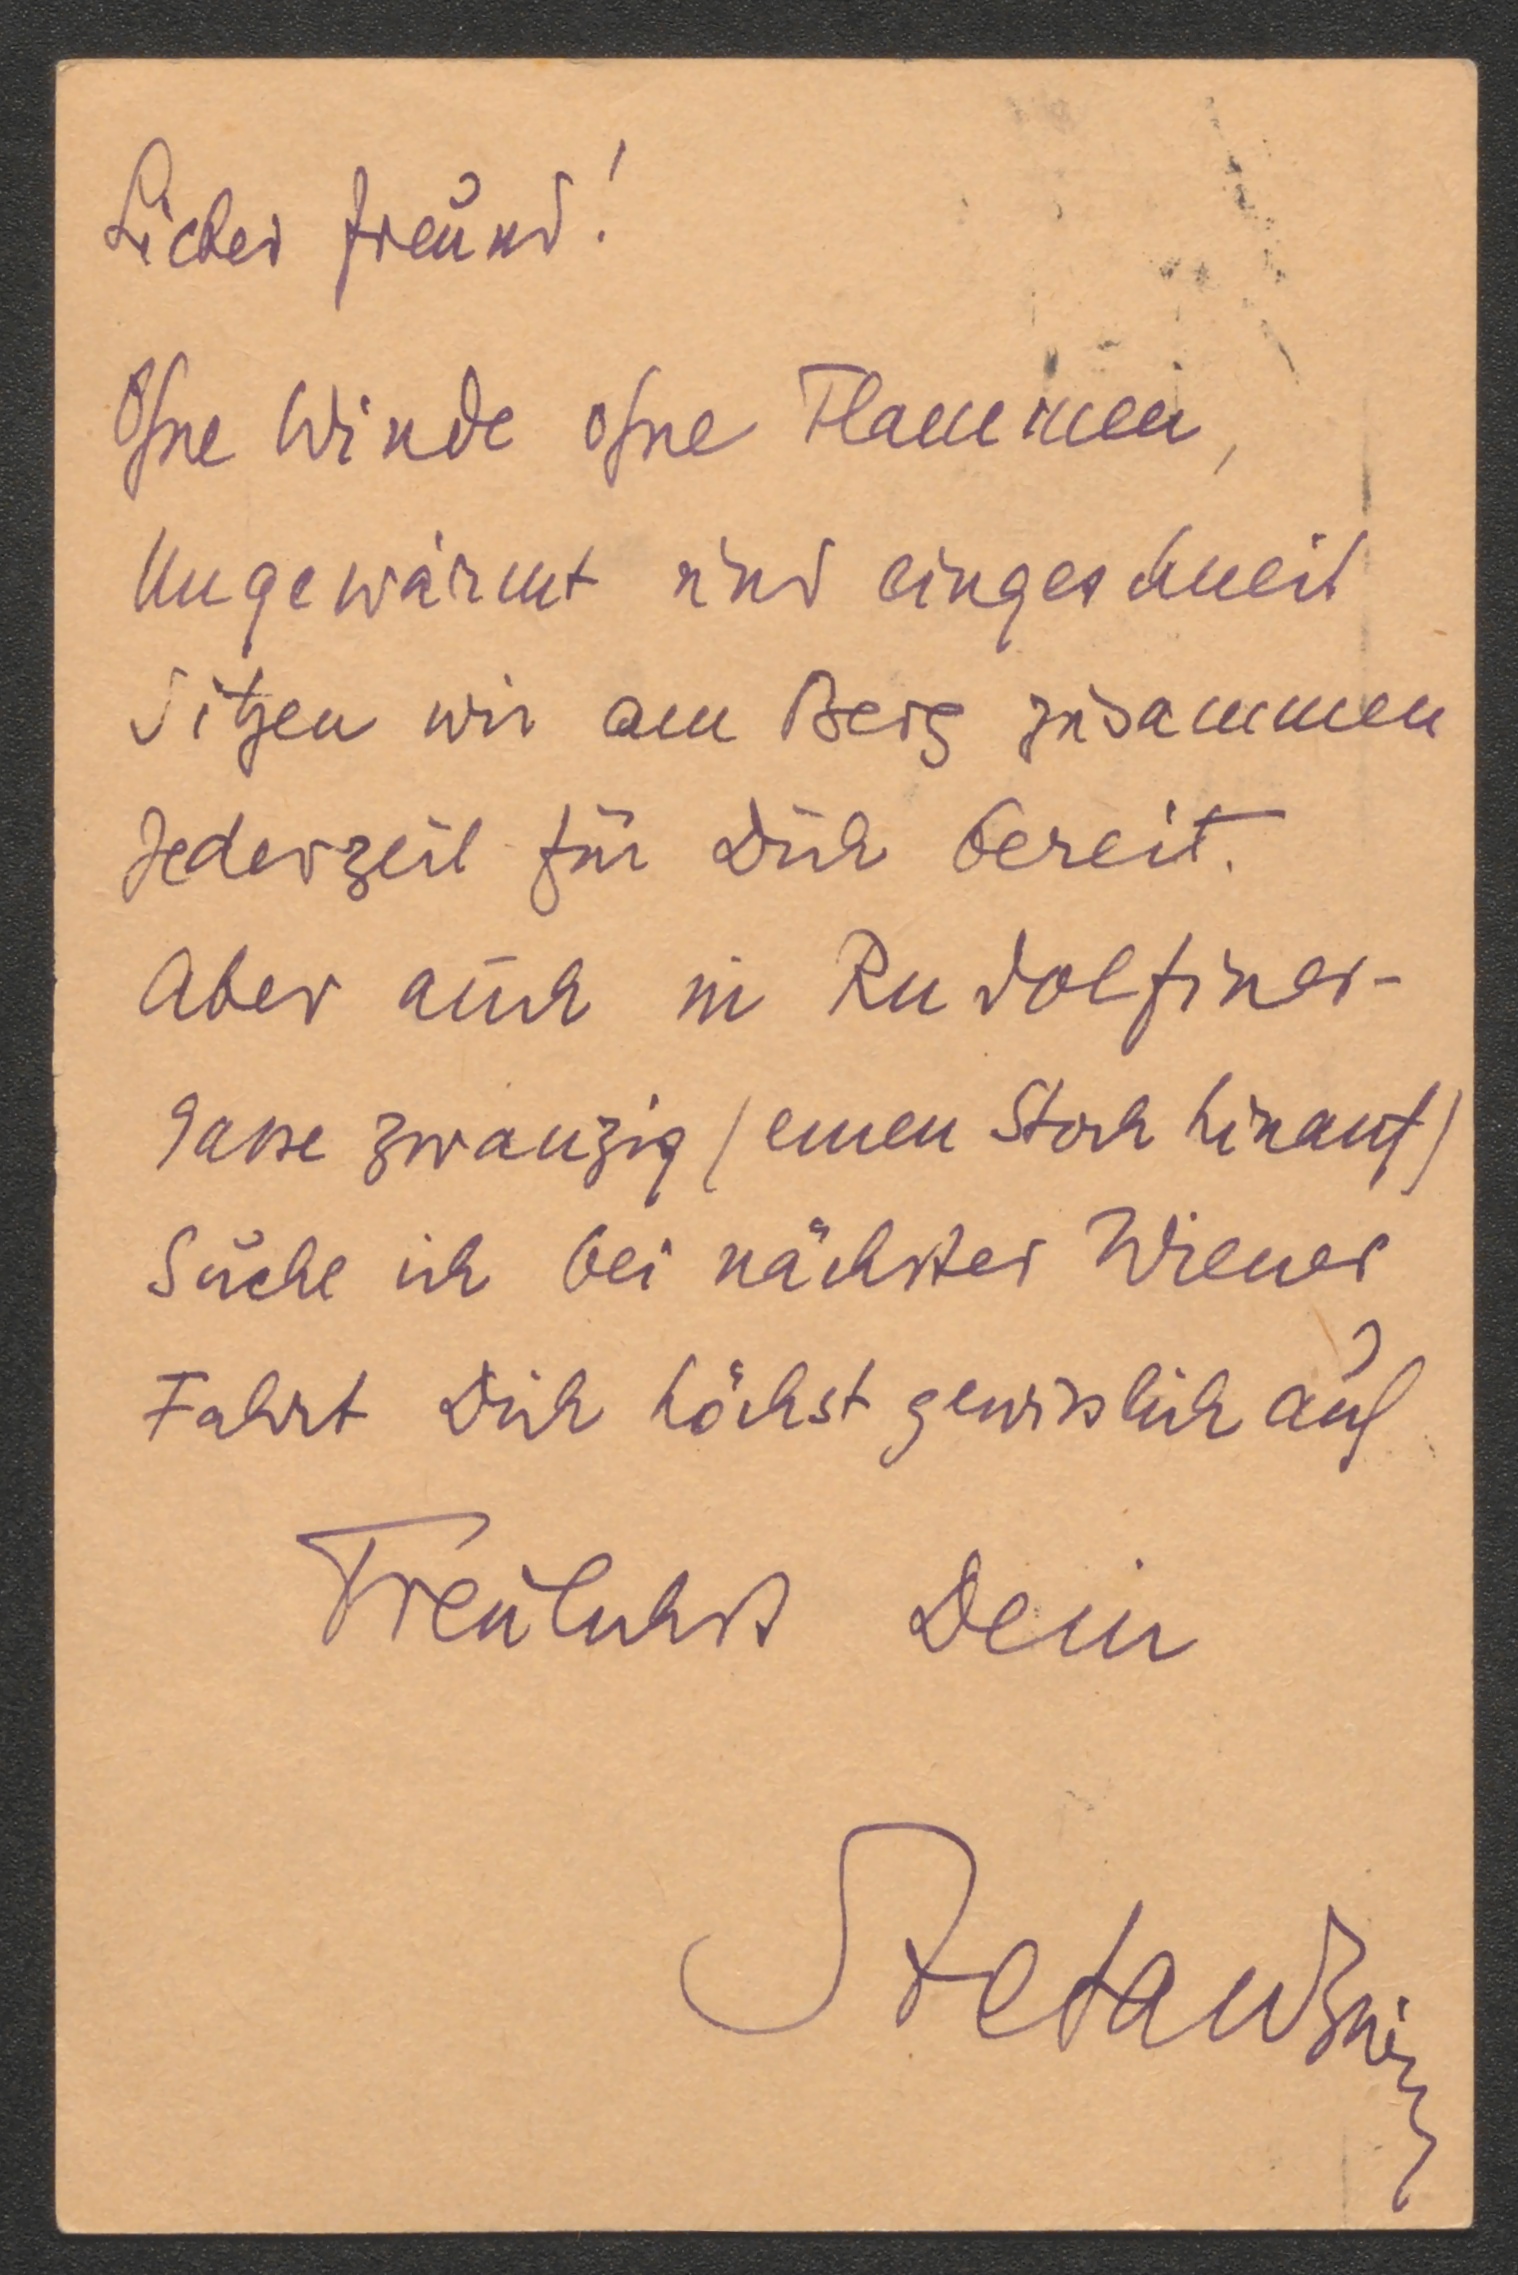 Lieber Freund!
Ohne Winde ohne Flammen,
Ungewärmt und eingeschneit
Sitzen wir am Berg zusammen
Jederzeit für Dich bereit.
Aber auch in Rudolfiner-
gasse zwanzig (einen Stock hinauf)
Suche ich bei nächster Wiener
Fahrt Dich höchst gewisslich auf
Treulichst Dein